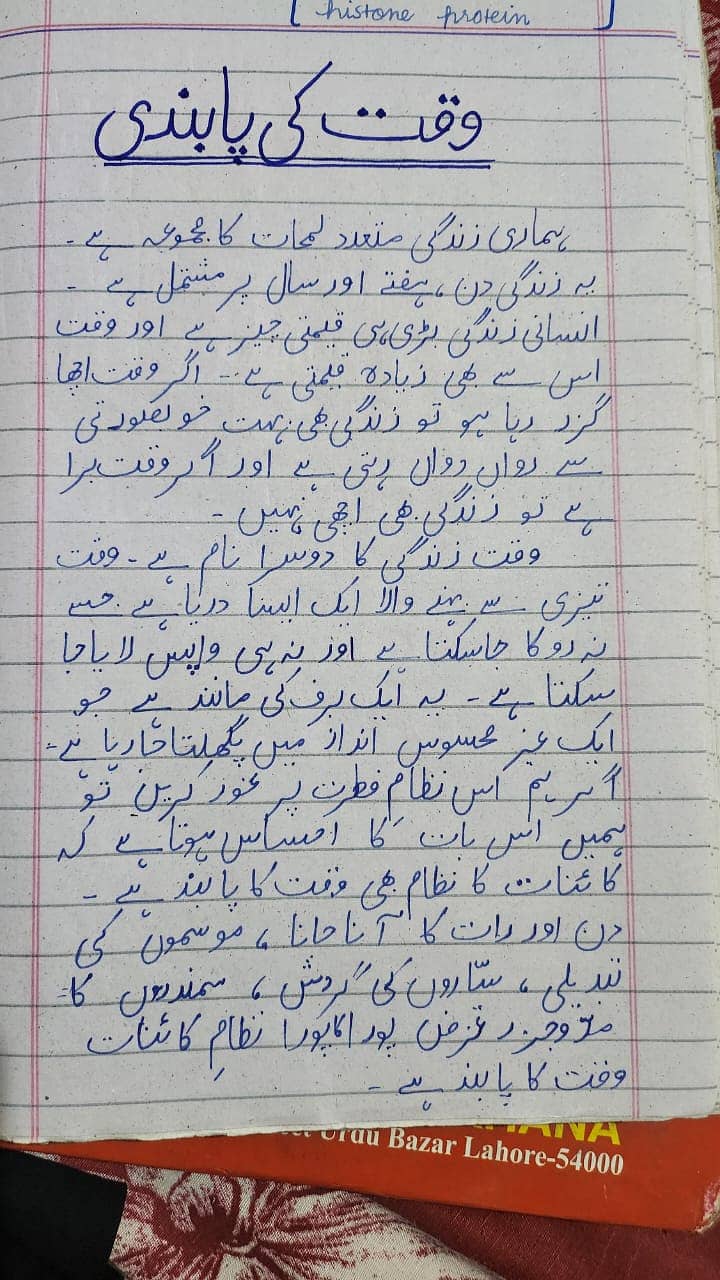 histone protein
وقت کی پابندی
ہماری زندگی متعدد لمحات کا مجموعہ ہے۔
یہ زندگی دن، ہفتے اور سال پر مشتمل ہے۔
انسانی زندگی بڑی ہی قیمتی چیز ہے اور وقت
اس سے بھی زیادہ قیمتی ہے۔ اگر وقت اچھا
گزر رہا ہو تو زندگی بھی بہت خوبصورتی
سے رواں دواں رہتی ہے اور اگر وقت برا
ہے تو زندگی بھی اچھی نہیں۔
وقت زندگی کا دوسرا نام ہے۔ وقت
تیزی سے بہنے والا ایک ایسا دریا ہے جسے
نہ روکا جاسکتا ہے اور نہ ہی واپس لایا جا
سکتا ہے۔ یہ ایک برف کی مانند ہے جو
ایک غیر محسوس انداز میں پگھلتا جا رہا ہے۔
اگر ہم اس نظامِ فطرت پر غور کریں تو
ہمیں اس بات کا احساس ہوتا ہے کہ
کائنات کا نظام بھی وقت کا پابند ہے۔
دن اور رات کا آنا جانا، موسموں کی
تبدیلی، ستاروں کی گردش، سمندروں کا
مدوجزر غرض پورا کا پورا نظامِ کائنات
وقت کا پابند ہے۔
Urdu Bazar Lahore-54000